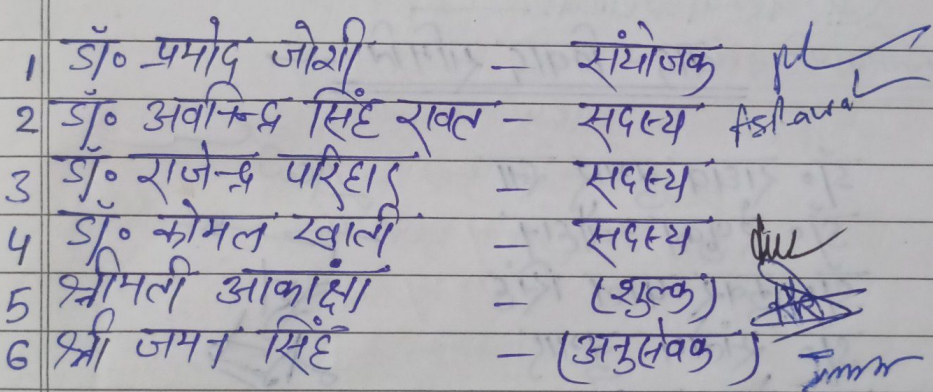 1 डॉ॰ प्रमोद जोशी – संयोजक
2 डॉ॰ अवनिन्द्र सिंह रावत – सदस्य
3 डॉ॰ राजेन्द्र परिहार – सदस्य
4 डॉ॰ कोमल खाती – सदस्य
5 श्रीमती आकांक्षा – (शुल्क)
6 श्री जमन सिंह – (अनुसेवक)